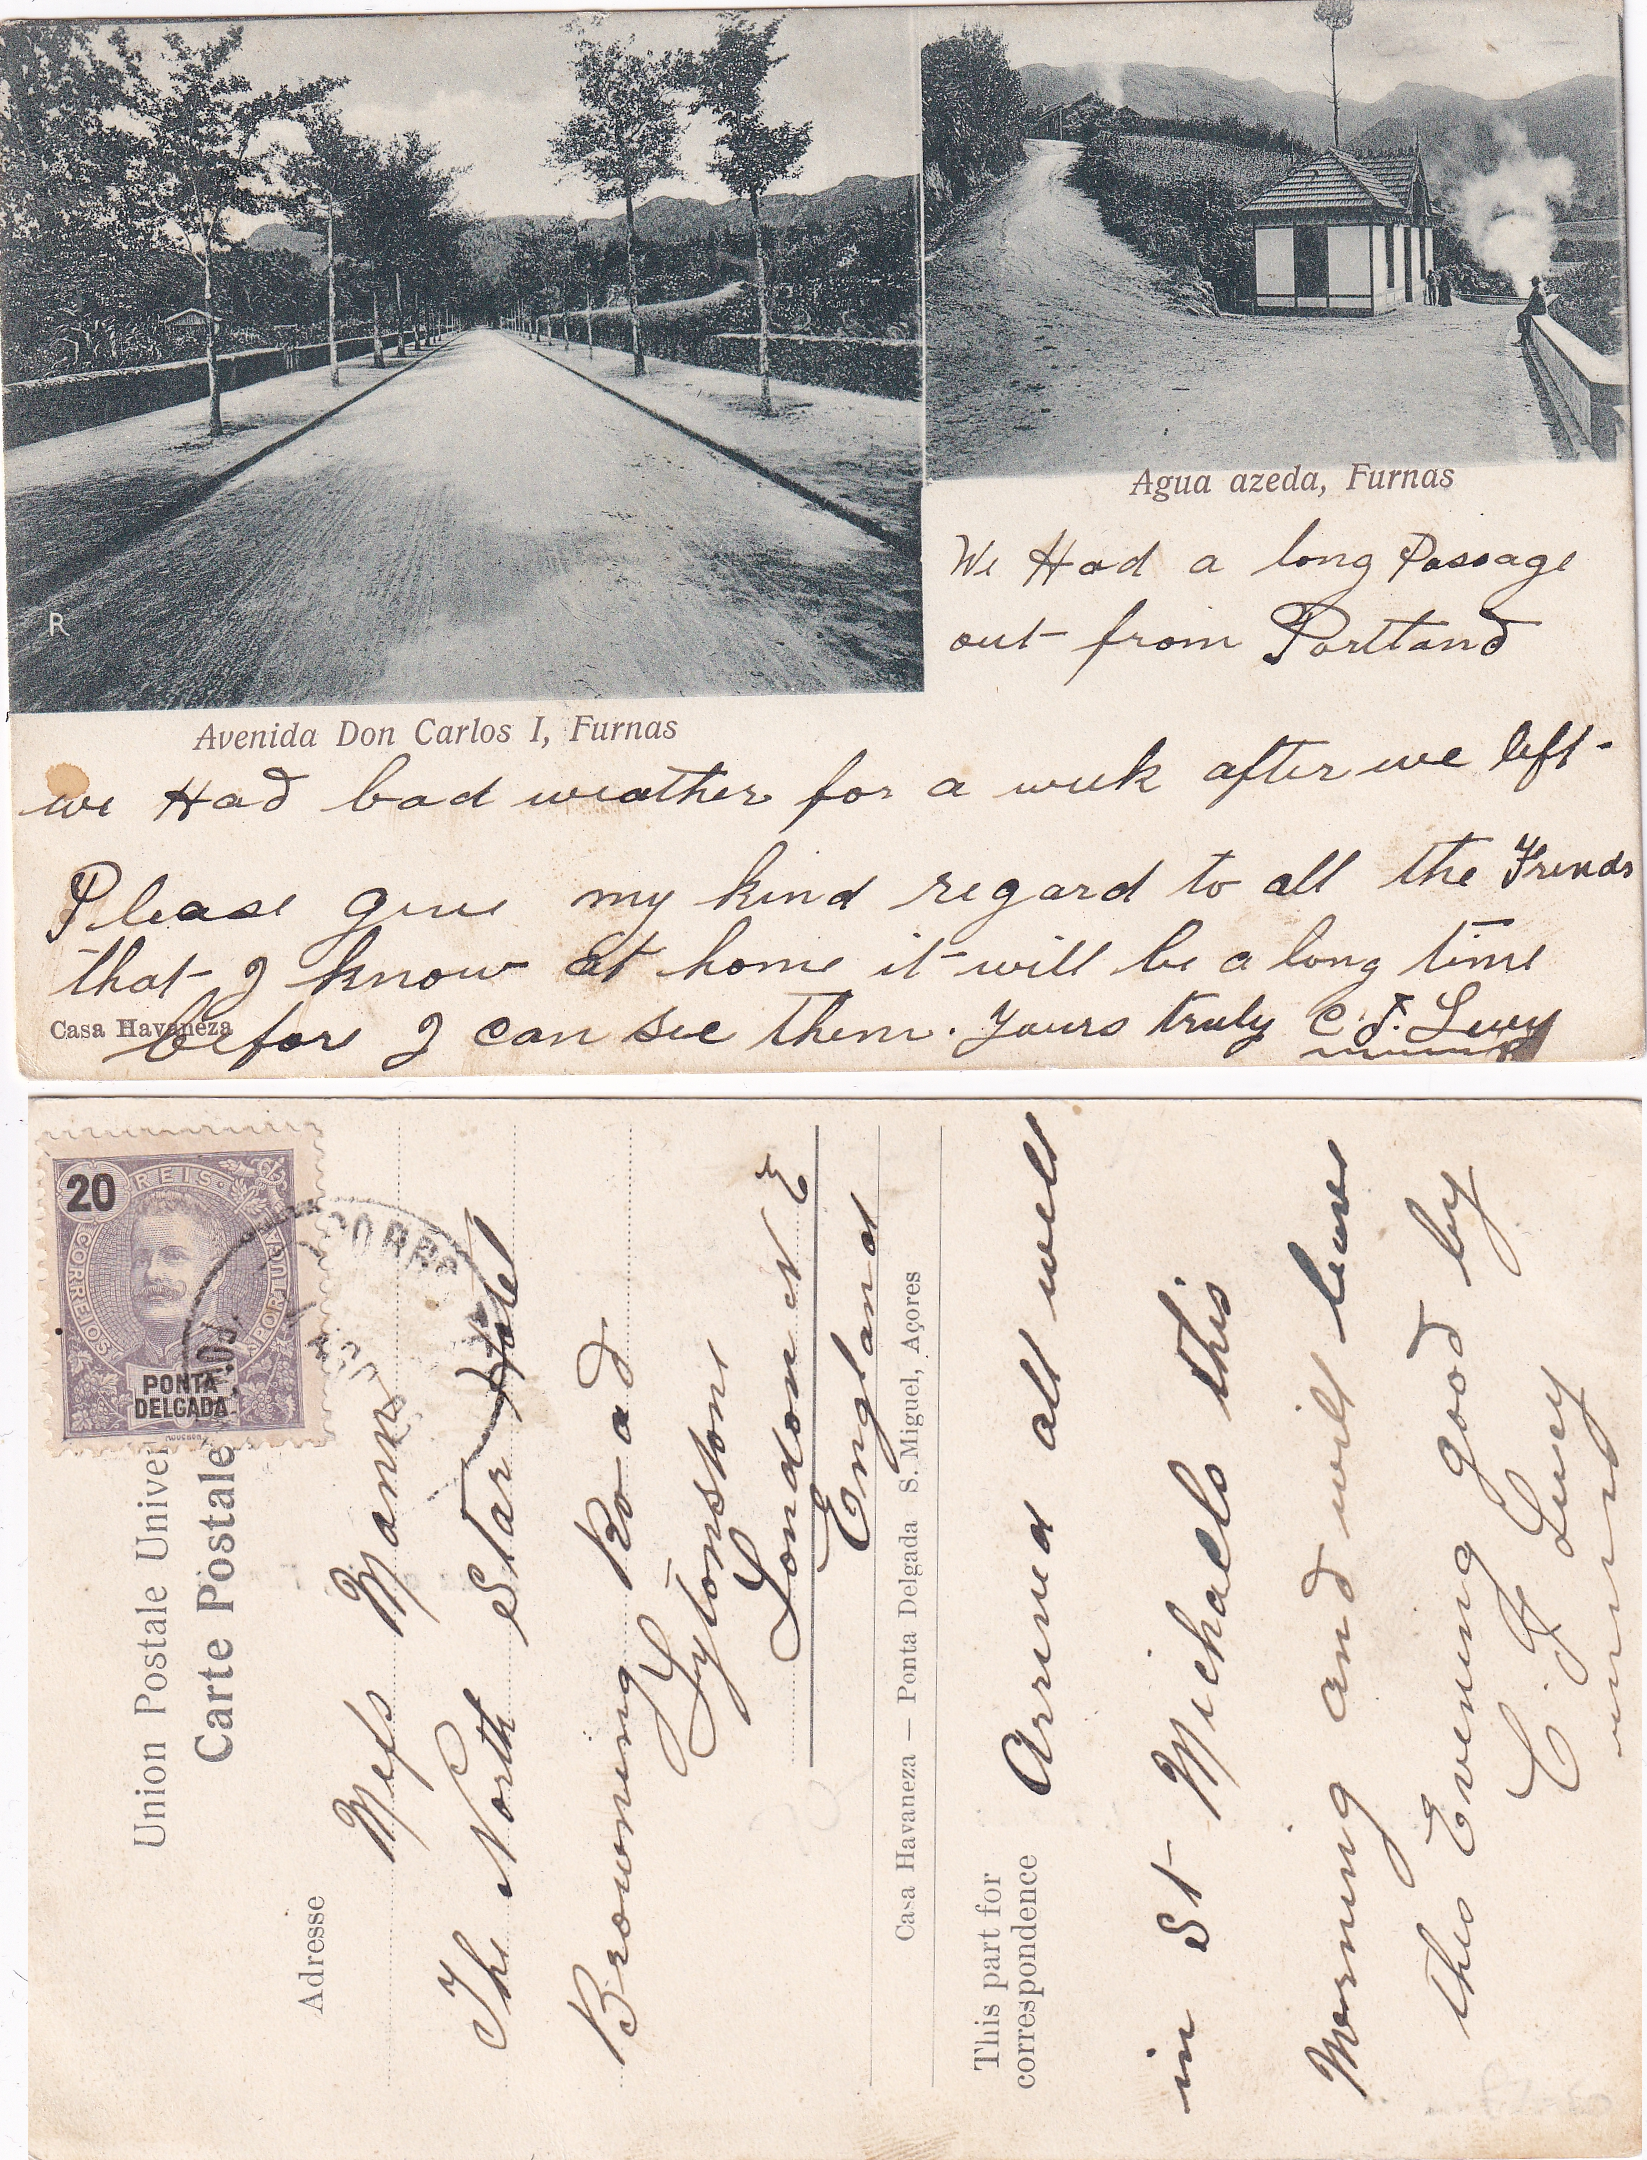 R
Avenida Don Carlos I, Furnas
Agua azeda, Furnas
We Had a long Passage
out from Portland
we Had bad weather for a week after we left
Please give my kind regard to all the Frends
that I know at home it will be a long time
before I can see them. Yours truly C. F. Luey
Casa Havaneza
20
REIS
CORREIOS
PORTUGAL
PONTA
DELGADA
CORRE
Union Postale Univer
Carte Postale
Adresse
Mefs Mann
The North Star Hotel
Browning Road
Lytonstone
London N E
England
Casa Havaneza — Ponta Delgada S. Miguel, Açores
This part for
correspondence
Arrived all well
in St Michaels this
Morning and will leave
this Evening good by
C F Luey